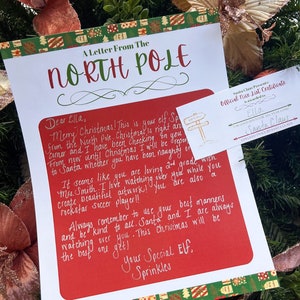 A Letter From The
NORTH POLE
Dear Ella,
Merry Christmas! This is your elf Sp
from the North Pole. Christmas is right around
corner and I have been checking on you
from now until Christmas I will be repor
to Santa whether you have been naughty o
It seems like you are loving 2nd grade with
Mrs. Smith. I love watching over you while you
create beautiful artwork! You are also a
rockstar soccer player!!
Always remember to use your best manners
and be kind to all. Santa and I are always
watching over you. This Christmas will be
the best one yet!
Your Special Elf,
Sprinkles
Official Nice List Certificate
Ella
Santa Claus